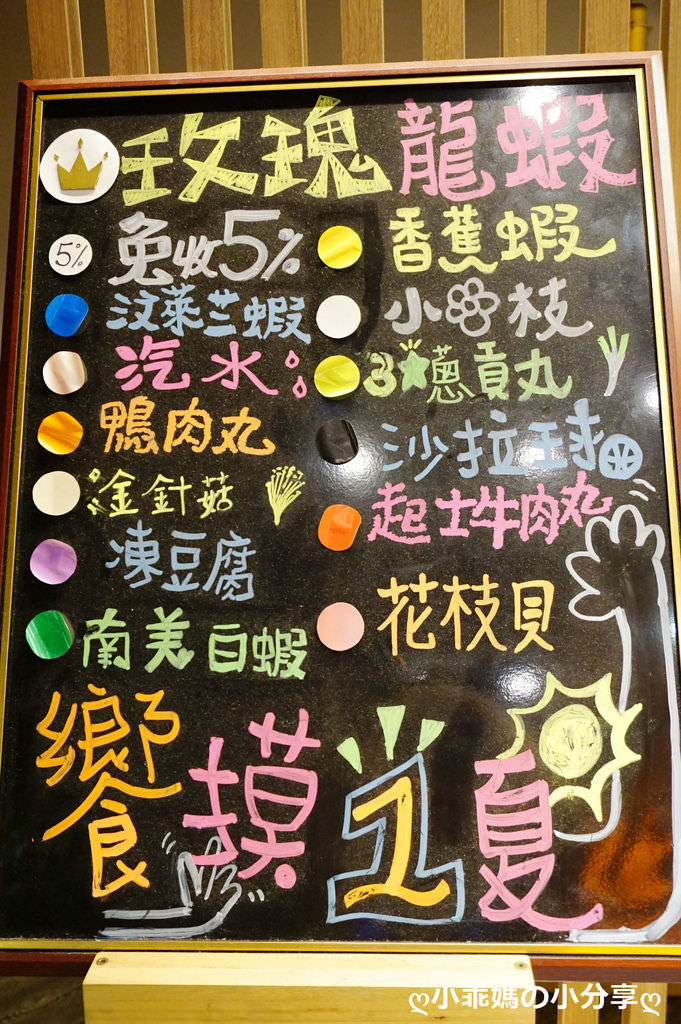 玫瑰龍蝦
5% 免收5%
汶萊兰蝦
汽水
鴨肉丸
金針菇
凍豆腐
南美白蝦
香蕉蝦
小花枝
3★蔥貢丸
沙拉球
起士牛肉丸
花枝貝
饗摸1夏
ღ小乖媽の小分享ღ